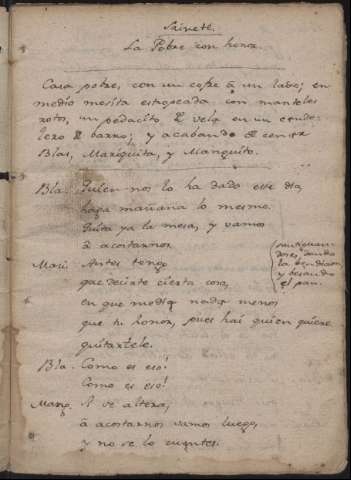 Sainete.
La Pobre con honra.
Casa pobre, con un cofre à un lado; en
medio mesita estropeada con manteles
rotos, un pedacito de vela en un cande-
lero de barro; y acabando de cenar
Blas, Mariquita, y Manguito.
Bla. Quien nos lo ha dado este dia,
haga mañana lo mesmo.
Quita ya la mesa, y vamos
à acostarnos.
santiguan-
dose, dando
la bendicion,
y besando
el pan.
Mari. Antes tengo
que decirte cierta cosa,
en que media nada menos
que tu honor, pues hai quien quiere
quitartele.
Bla. Como es eso!
Como es eso!
Mang. Si se altera,
à acostarnos vamos luego,
y no se lo cuentes.